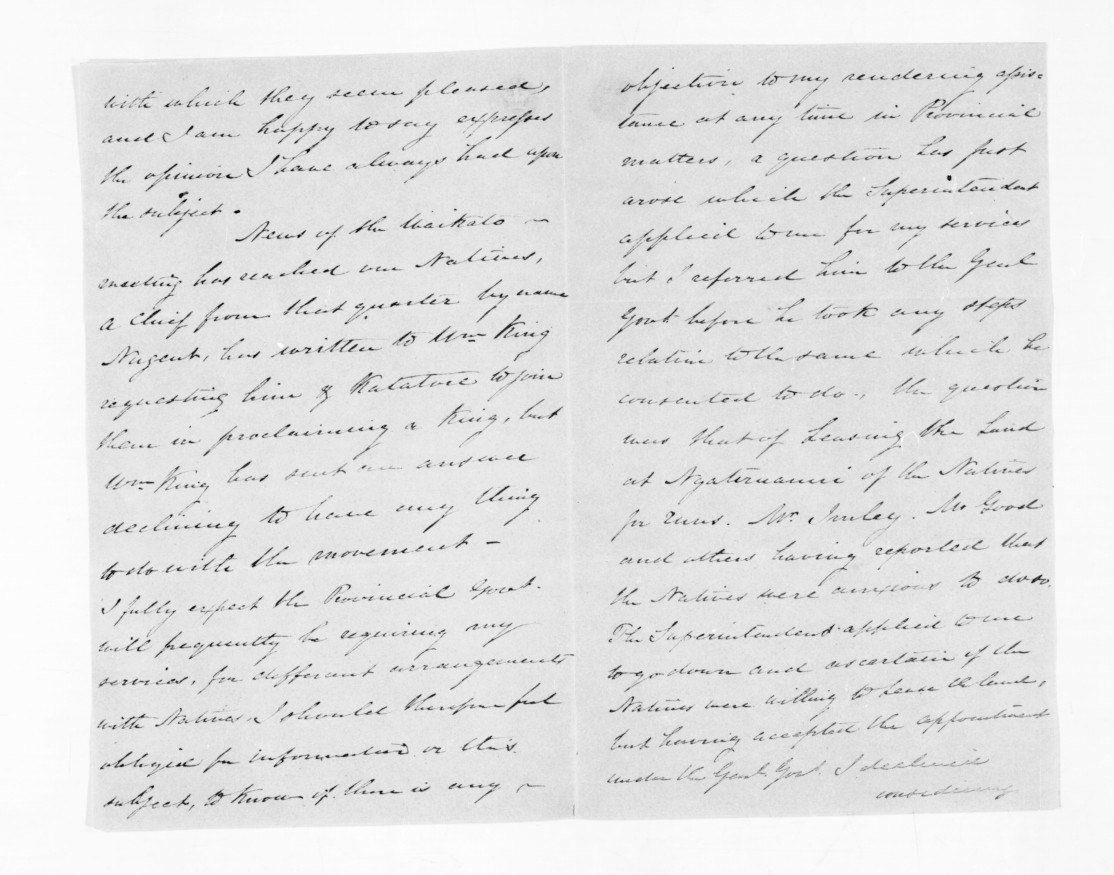 with which they seem pleased,
and I am happy to say expresses
the opinion I have always had upon
the subject.
News of the Waikato ~
meeting has reached our Natives,
a Chief from that quarter by name
Nugent, has written to Wm King
requesting him & Katatore to join
them in proclaiming a King, but
Wm King has sent an answer
declining to have any thing
to do with the movement -
I fully expect the Provincial Govt.
will frequently be requiring my
services, for different arrangements
with Natives, I should therefore feel
obliged for information on this
subject, to know if there is any ~
objection to my rendering assis=
tance at any time in Provincial
matters, a question has just
arose which the Superintendent
applied to me for my services
but I referred him to the Genl
Govt. before he took any steps
relative to the same which he
consented to do., the question
was that of Leasing the Land
at Ngatimanu of the Natives
for runs. Mr. Imley. Mr Good
and others having reported that
the Natives were anxious to do so.
The Superintendent applied to me
to go down and ascertain if the
Natives were willing to lease the land,
but having accepted the appointment
under the Genl. Govt. I declined
considering